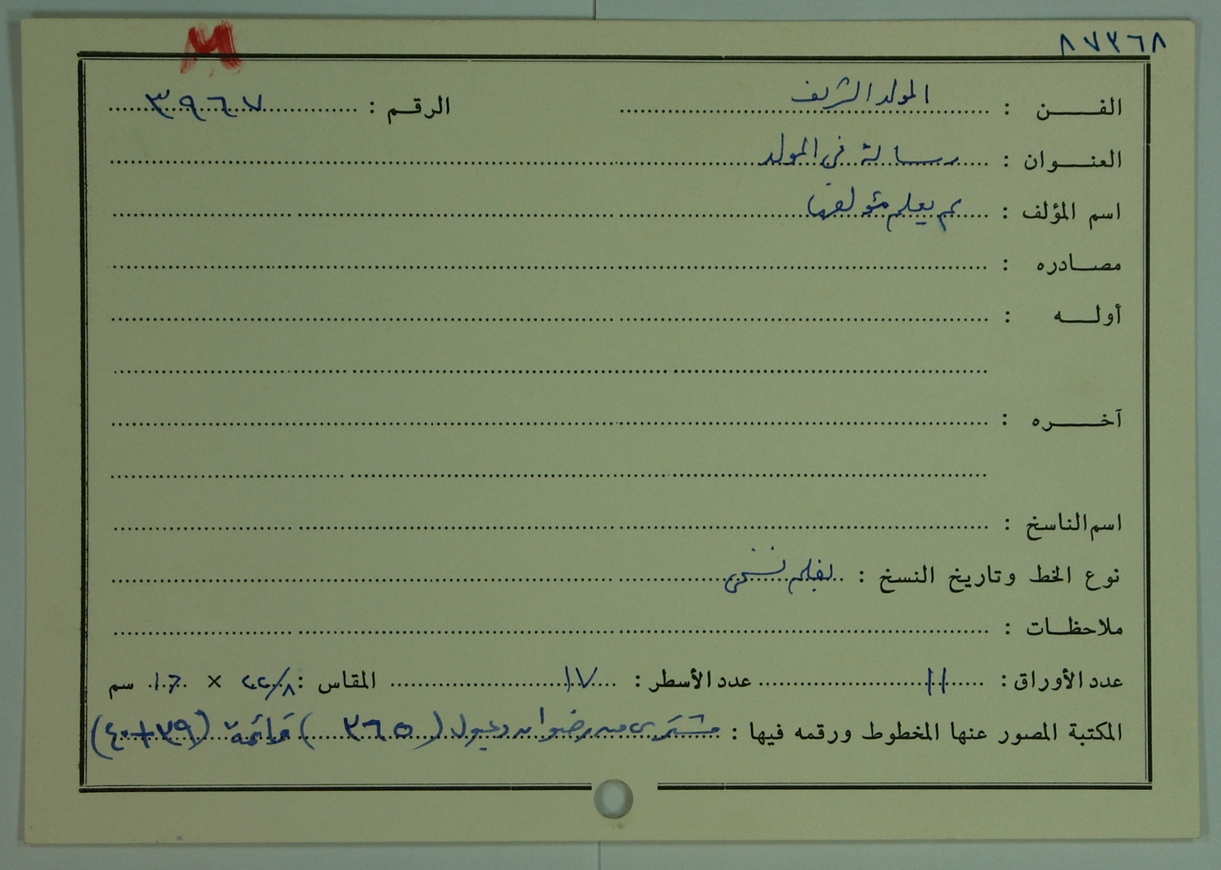 ٨٧٣٦٨
M
الفـــن : المولد الشريف الرقم : ٣٩٦٧
العنـوان : رسالة في المولد
اسم المؤلف : لم يعلم مؤلفها
مصـادره :
أولـــه :
آخـــره :
اسم الناسخ :
نوع الخط وتاريخ النسخ : بقلم نسخي
ملاحظـات :
عدد الأوراق : ١١ عدد الأسطر : ١٧ المقاس : ٢٢/٨ × ١٦ سم
المكتبة المصور عنها المخطوط ورقمه فيها : مشترى من رضوان دعبول (٣٦٥) قائمة (٣٩+٤٠)